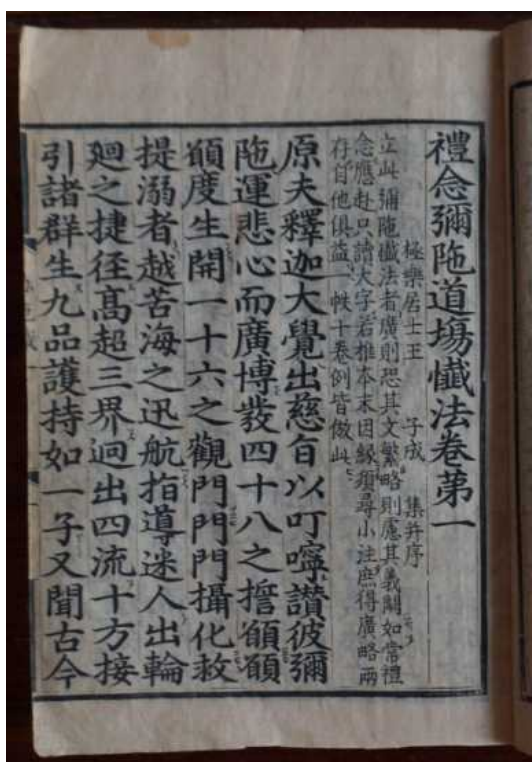 禮念彌陁道場懺法卷第一
極樂居士王 子成 集并序
立此彌陁懺法者廣則恐其文繁略則慮其義闕如常禮
念應赴只讀大字若推本末因緣須尋小注庶得廣略兩
存自他俱益一帙十卷例皆倣此
原夫釋迦大覺出慈旨以叮嚀讚彼彌
陁運悲心而廣博發四十八之誓願願
願度生開一十六之觀門門門攝化救
提溺者越苦海之迅航指導迷人出輪
廻之捷徑髙超三界迥出四流十方接
引諸群生九品護持如一子又聞古今